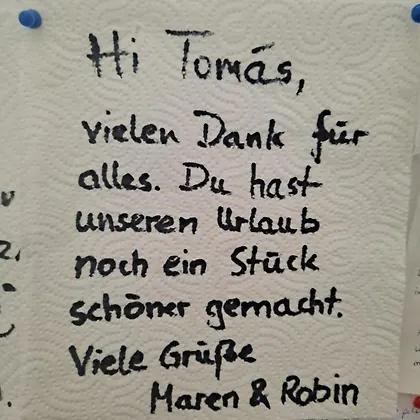 Hi Tomás,
vielen Dank für
alles. Du hast
unseren Urlaub
noch ein Stück
schöner gemacht.
Viele Grüße
Maren & Robin